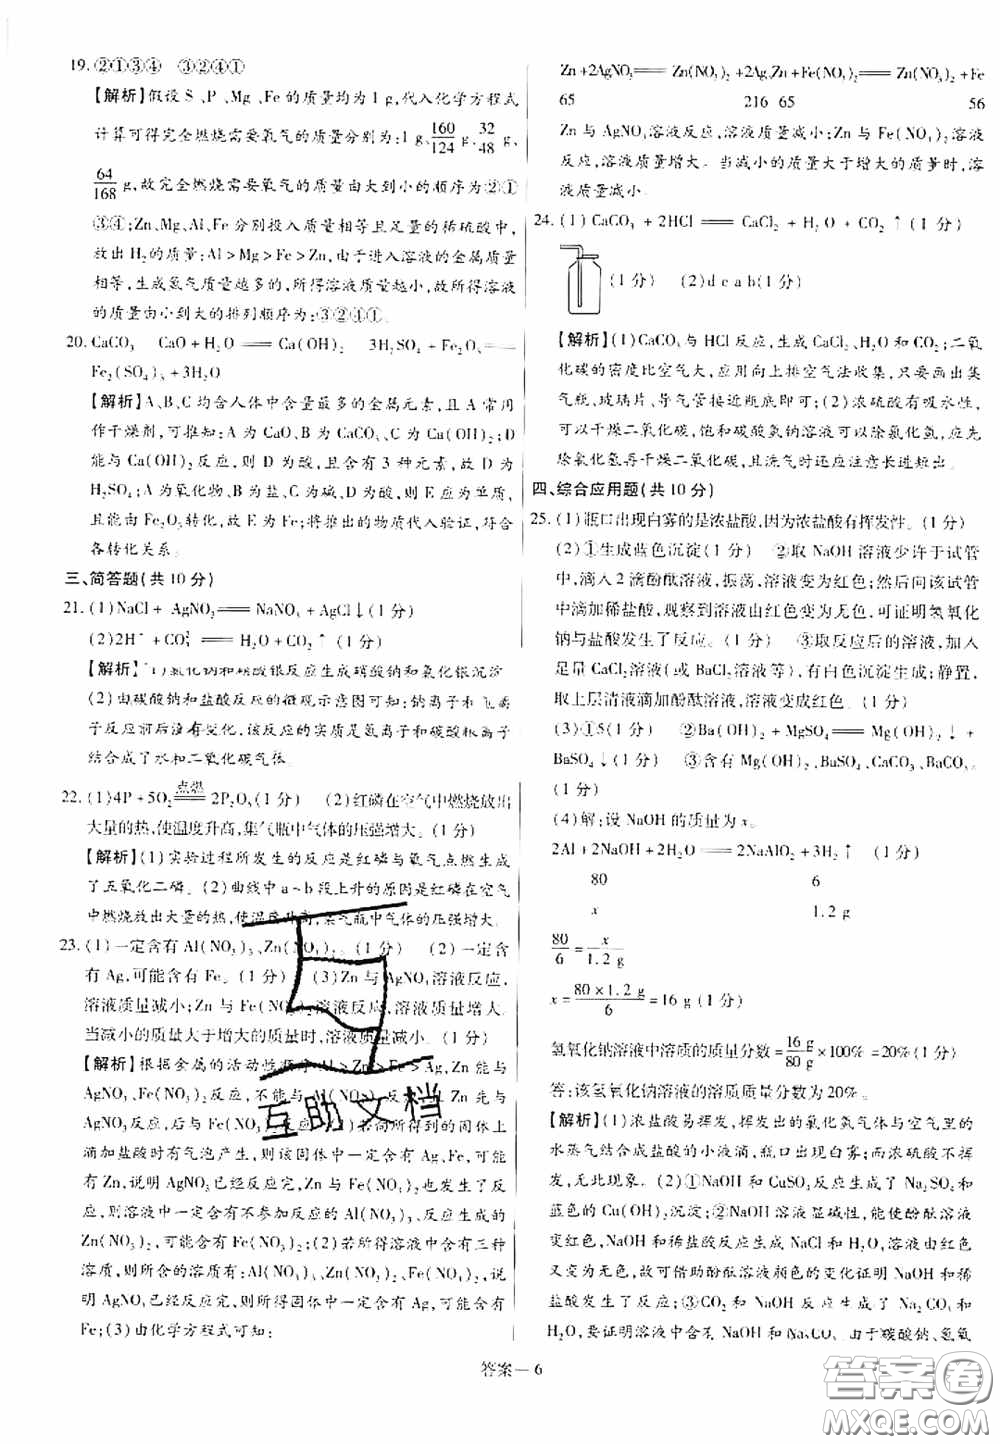 19. ②①③④　③②④①
【解析】假设 S、P、Mg、Fe 的质量均为 1 g,代入化学方程式
计算可得完全燃烧需要氧气的质量分别为:1 g、160/124 g、32/48 g、
64/168 g,故完全燃烧需要氧气的质量由大到小的顺序为②①
③④;Zn、Mg、Al、Fe 分别投入质量相等且足量的稀硫酸中,
放出 H₂ 的质量为:Al＞Mg＞Fe＞Zn,由于进入溶液的金属质量
相等,生成氢气质量越多的,所得溶液质量越小,故所得溶液
的质量由小到大的排列顺序为:③②④①。
20. CaCO₃　CaO＋H₂O══Ca(OH)₂　3H₂SO₄＋Fe₂O₃══
Fe₂(SO₄)₃＋3H₂O
【解析】A、B、C 均含人体中含量最多的金属元素,且 A 常用
作干燥剂,可推知:A 为 CaO、B 为 CaCO₃、C 为 Ca(OH)₂;D
能与 Ca(OH)₂反应,则 D 为酸,且含有 3 种元素,故 D 为
H₂SO₄;A 为氧化物、B 为盐、C 为碱、D 为酸,则 E 应为单质,
能由 Fe₂O₃转化,故 E 为 Fe;将推出的物质代入验证,符合
各转化关系。
三、简答题(共 10 分)
21. (1)NaCl＋AgNO₃══NaNO₃＋AgCl↓(1 分)
(2)2H⁺＋CO₃²⁻══H₂O＋CO₂↑(1 分)
【解析】(1)氯化钠和硝酸银反应生成硝酸钠和氯化银沉淀
(2)由碳酸钠和盐酸反应的微观示意图可知:钠离子和氯离
子反应前后没有变化,该反应的实质是氢离子和碳酸根离子
结合成了水和二氧化碳气体。
22. (1)4P＋5O₂ 点燃══ 2P₂O₅(1 分)　(2)红磷在空气中燃烧放出
大量的热,使温度升高,集气瓶中气体的压强增大。(1 分)
【解析】(1)实验过程所发生的反应是红磷与氧气点燃生成
了五氧化二磷。(2)曲线中 a～b 段上升的原因是红磷在空气
中燃烧放出大量的热,使温度升高,集气瓶中气体的压强增大。
23. (1)一定含有 Al(NO₃)₃、Zn(NO₃)₂。(1 分)　(2)一定含
有 Ag,可能含有 Fe。(1 分)　(3)Zn 与 AgNO₃溶液反应,
溶液质量减小;Zn 与 Fe(NO₃)₂溶液反应,溶液质量增大。
当减小的质量大于增大的质量时,溶液质量减小。(1 分)
【解析】根据金属的活动性顺序 Al＞Zn＞Fe＞Ag,Zn 能与
AgNO₃反应,后与 Fe(NO₃)₂反应;若简所得到的固体上
滴加盐酸时有气泡产生,则该固体中一定含有 Ag、Fe,可能含
有 Zn,说明 AgNO₃已经反应完,Fe(NO₃)₂可能反应完,也可能没反
应,则溶液中一定含有不参加反应的 Al(NO₃)₃和反应生成的
Zn(NO₃)₂,可能含有 Fe(NO₃)₂;(2)若所得溶液中含有三种
溶质,则所含的溶质有:Al(NO₃)₃、Zn(NO₃)₂、Fe(NO₃)₂,说
明 AgNO₃已经反应完,则所得固体中一定含有 Ag,可能含有
Fe;(3)由化学方程式可知:
Zn＋2AgNO₃══Zn(NO₃)₂＋2Ag、Zn＋Fe(NO₃)₂══Zn(NO₃)₂＋Fe
65　216　65　56
Zn 与 AgNO₃溶液反应,溶液质量减小;Zn 与 Fe(NO₃)₂溶液
反应,溶液质量增大。当减小的质量大于增大的质量时,溶
液质量减小。
24. (1)CaCO₃＋2HCl══CaCl₂＋H₂O＋CO₂↑(1 分)
(1 分)　(2)d c a b(1 分)
【解析】(1)CaCO₃与 HCl 反应,生成 CaCl₂、H₂O 和 CO₂;二氧
化碳的密度比空气大,应用向上排空气法收集,只要画出集
气瓶、玻璃片、导气管接近瓶底即可;(2)浓硫酸有吸水性,
可以干燥二氧化碳,饱和碳酸氢钠溶液可以除氯化氢,应先
除氯化氢再干燥二氧化碳,且洗气时还应注意长进短出。
四、综合应用题(共 10 分)
25. (1)瓶口出现白雾的是浓盐酸,因为浓盐酸有挥发性。(1 分)
(2)①生成蓝色沉淀(1 分)　②取 NaOH 溶液少许于试管
中,滴入 2 滴酚酞溶液,振荡,溶液变为红色;然后向该试管
中滴加稀盐酸,观察到溶液由红色变为无色,可证明氢氧化
钠与盐酸发生了反应。(1 分)　③取反应后的溶液,加入
足量 CaCl₂溶液(或 BaCl₂溶液等),有白色沉淀生成;静置,
取上层清液滴加酚酞溶液,溶液变成红色。(1 分)
(3)①5(1 分)　②Ba(OH)₂＋MgSO₄══Mg(OH)₂↓＋
BaSO₄↓(1 分)　③含有 Mg(OH)₂、BaSO₄、CaCO₃、BaCO₃
(1 分)
(4)解:设 NaOH 的质量为 x。
2Al＋2NaOH＋2H₂O══2NaAlO₂＋3H₂↑　(1 分)
80　6
x　1.2 g
80/6＝x/1.2 g
x＝80×1.2 g/6＝16 g(1 分)
氢氧化钠溶液中溶质的质量分数＝16 g/80 g×100%＝20%(1 分)
答:该氢氧化钠溶液的溶质质量分数为 20%。
【解析】(1)浓盐酸易挥发,挥发出的氯化氢气体与空气里的
水蒸气结合成盐酸的小液滴,瓶口出现白雾;而浓硫酸不挥
发,无此现象。(2)①NaOH 和 CuSO₄反应生成了 Na₂SO₄和
蓝色的 Cu(OH)₂沉淀;②NaOH 溶液显碱性,能使酚酞溶液
变红色,NaOH 和稀盐酸反应生成 NaCl 和 H₂O,溶液由红色
又变为无色,故可借助酚酞溶液颜色的变化证明 NaOH 和稀
盐酸发生了反应;③CO₂和 NaOH 反应生成了 Na₂CO₃和
H₂O,要证明溶液中含有 NaOH 和 Na₂CO₃,由于碳酸钠、氢氧
答案－6
互助文档
答案圈
MXQE.COM